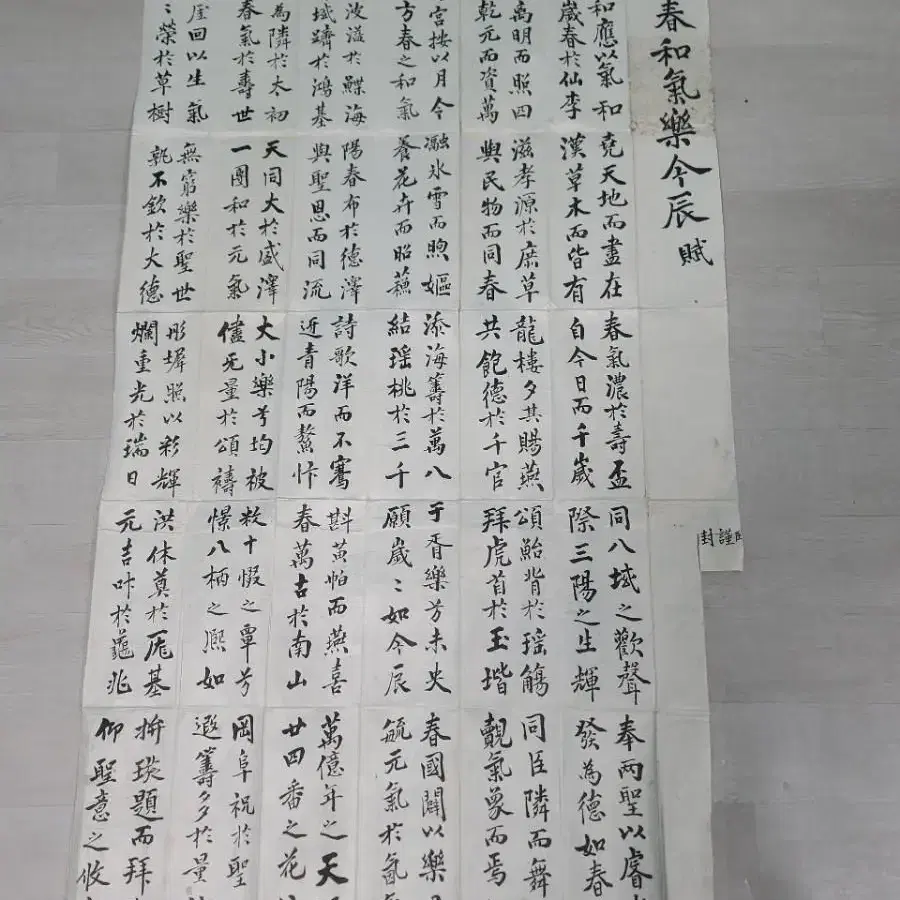 春和氣樂今辰 賦
和應以氣和
歲春於仙李
离明而照四
乾元而資萬
宮按以月令
方春之和氣
波溢於鰈海
域躋於鴻基
為隣於太初
春氣於壽世
屋回以生氣
〻榮於草樹
堯天地而盡在
漢草木而皆有
滋孝源於庶草
與民物而同春
瀜氷雪而煦嫗
養花卉而昭蘇
陽春布於德澤
與聖恩而同流
天同大於盛澤
一團和於元氣
無窮樂於聖世
孰不欽於大德
春氣濃於壽盃
自今日而千歲
龍樓夕其賜燕
共飽德於千官
添海籌於萬八
結瑤桃於三千
詩歌洋而不騫
近青陽而鰲忭
大小樂兮均被
儘无量於頌禱
彤墀照以彩輝
爛重光於瑞日
同八域之歡聲
際三陽之生輝
頌鮐背於瑤觴
拜虎首於玉堦
于胥樂兮未央
願歲〻如今辰
斟黃帕而燕喜
春萬古於南山
十嘏之覃兮
憬八柄之熙如
洪休奠於厖基
元吉叶於龜兆
奉兩聖以睿
發為德如春
同臣隣而舞
覩氣象而焉
春國闢以樂
毓元氣於氤
萬億年之天
廿四番之花
岡阜祝於聖
遐籌多於量
拚琰題而拜
仰聖意之攸
謹封